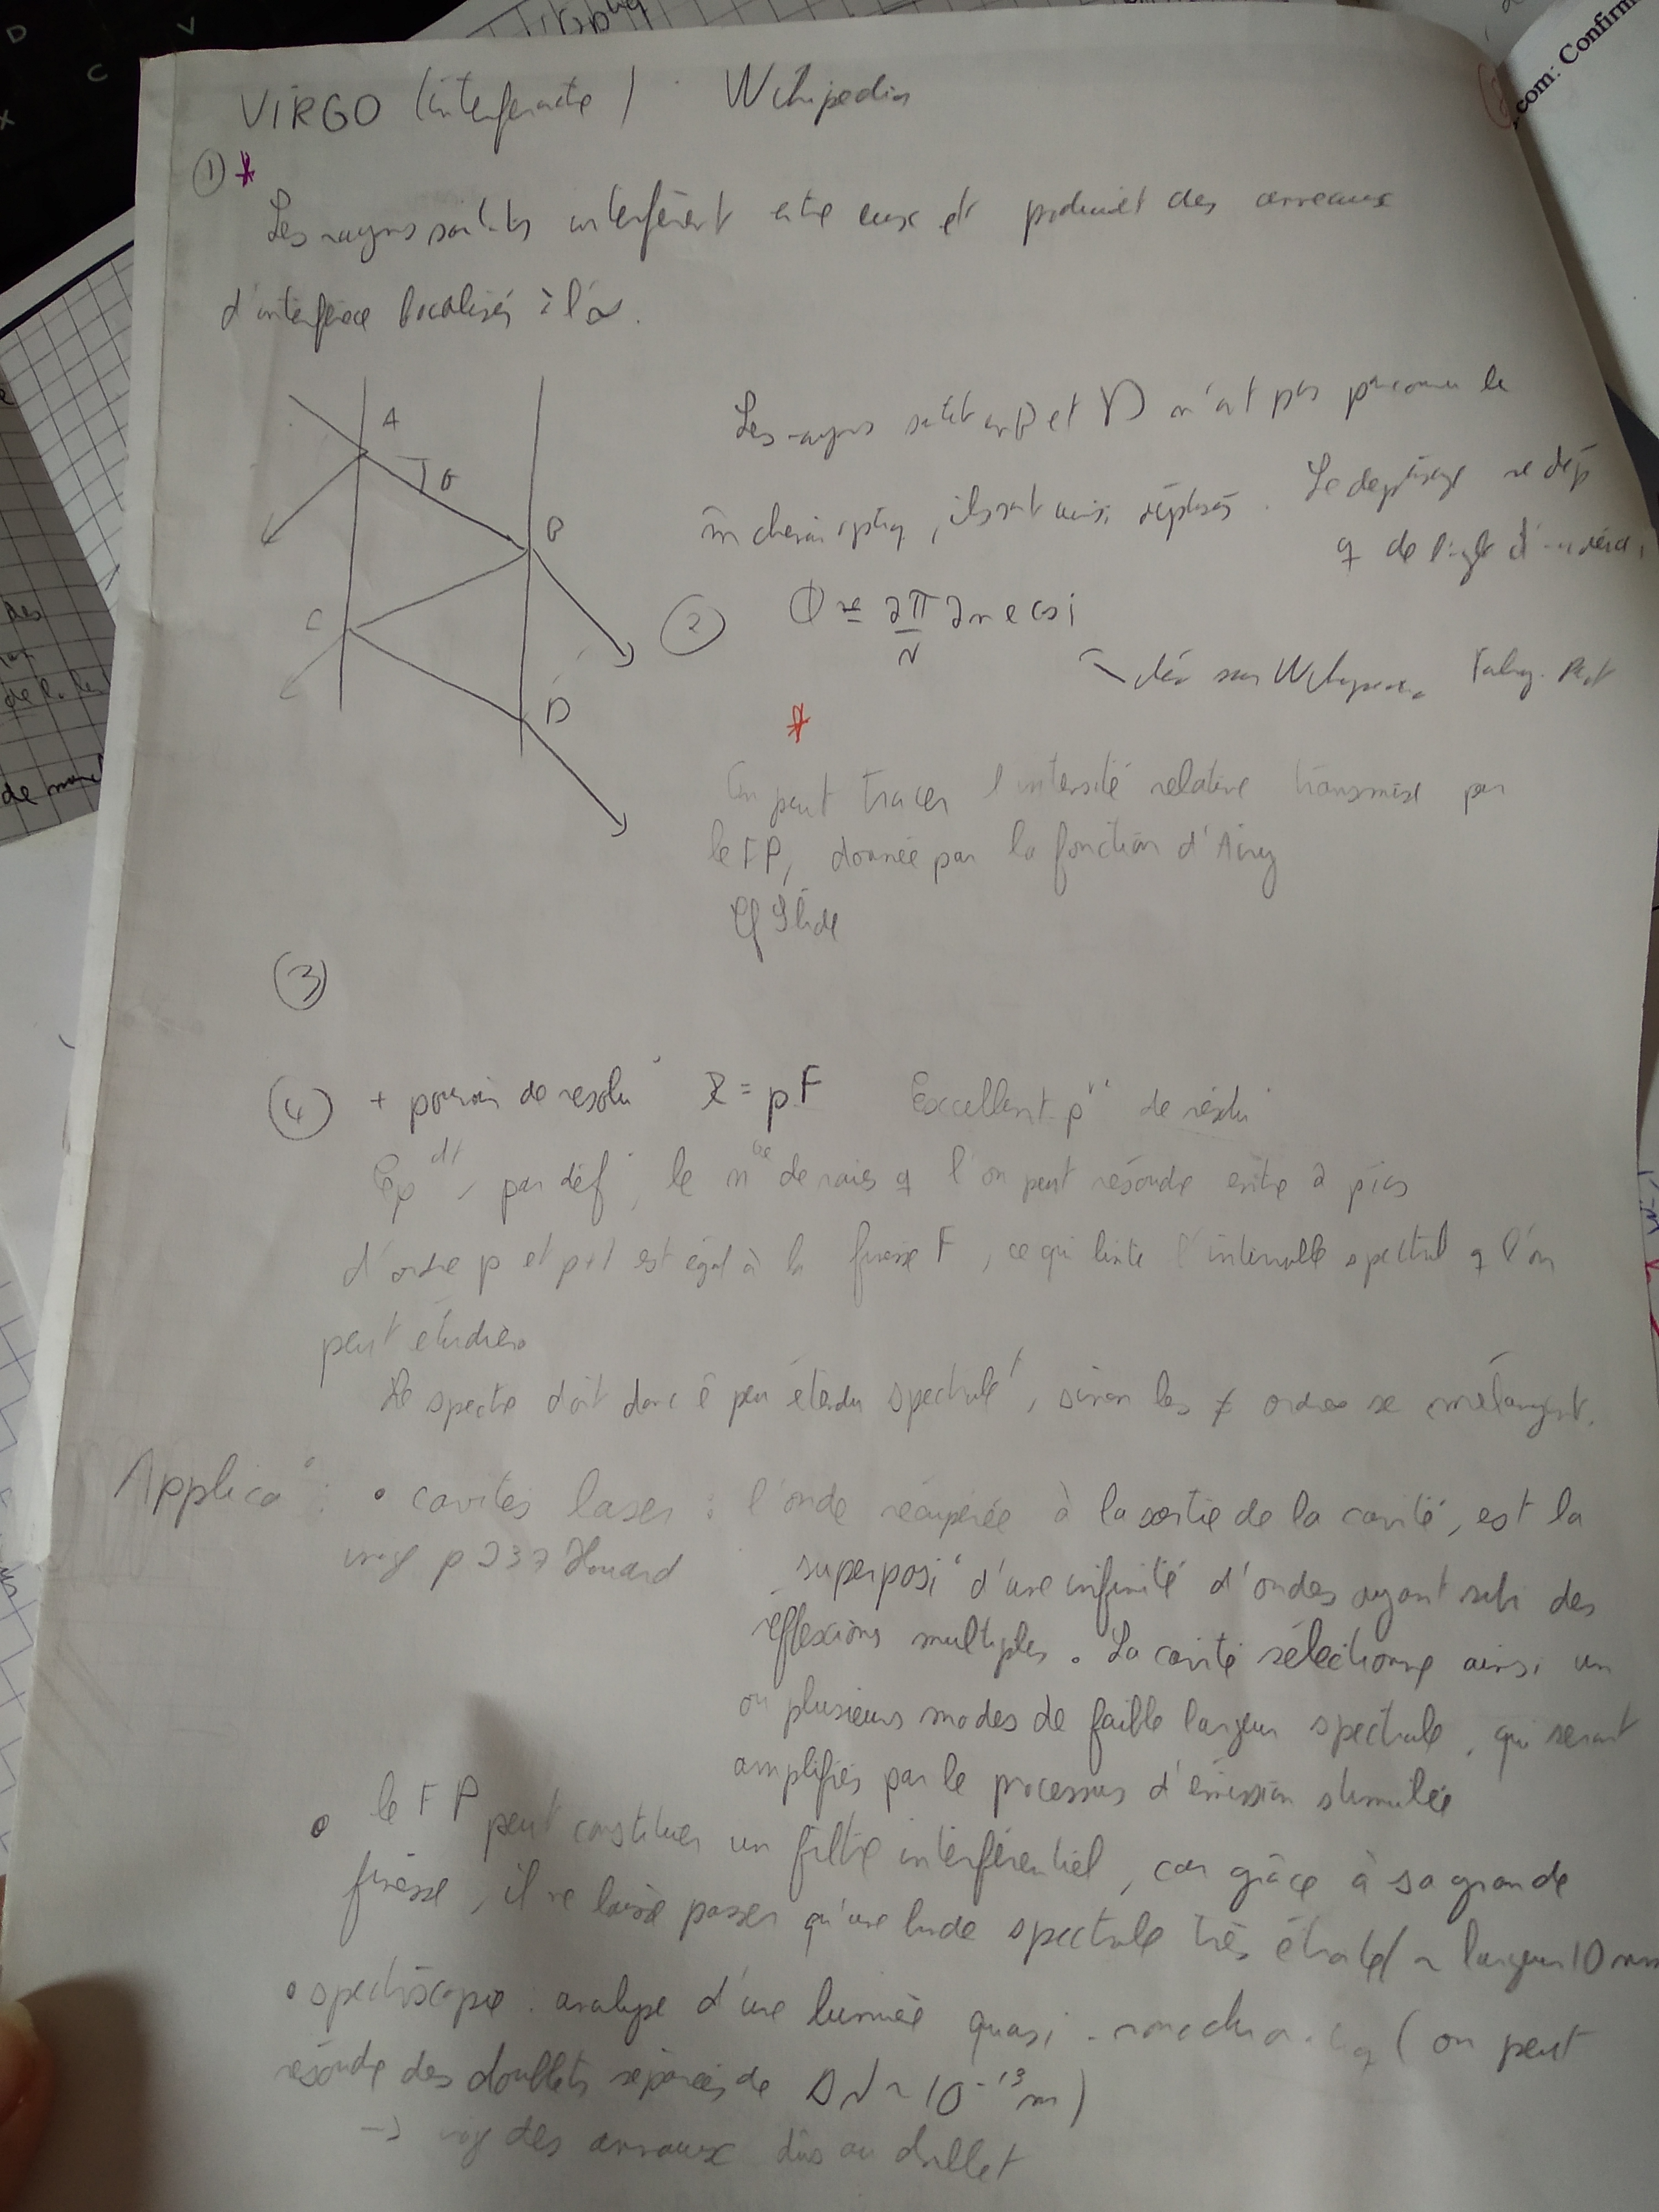 VIRGO (interferomte) Wikipedia
① *
Les rayons sortants interfèrent entre eux et produisent des anneaux
d'interférence localisés à l'∞.
A
θ
B
C
D
Les rayons sortant en B et D n'ont pas parcouru le
m̂ chemin optiq, ils sont ainsi déphasés. Le déphasage ne dép
q de l'angle d'incidence
② Φ = 2π/λ 2 n e cos i
dém sur Wikipedia Fabry. Pérot
*
On peut tracer l'intensité relative transmise par
le FP, donnée par la fonction d'Airy
Cf Slide
③
④ + pouvoir de resolu° R = pF Excellent pvr de résolu°
Cpdt, par déf°, le nbre de raies q l'on peut résoudre entre 2 pics
d'ordre p et p+1 est égal à la finesse F, ce qui limite l'intervalle spectral q l'on
peut étudier.
Le spectre doit donc ê peu étendu spectralt, sinon les ≠ ordres se mélangent.
Applica° : • cavités laser : l'onde récupérée à la sortie de la cavité, est la
p 237 Houard superposi° d'une infinité d'ondes ayant subi des
réflexions multiples. La cavité sélectionne ainsi un
ou plusieurs modes de faible largeur spectrale, qui seront
amplifiés par le processus d'émission stimulée
• le FP peut constituer un filtre interférentiel, car grâce à sa grande
finesse, il ne laisse passer qu'une bande spectrale très étroite ~ largeur 10 nm
• spectroscopie : analyse d'une lumière quasi-monochromatiq (on peut
résoudre des doublets séparés de Δλ ~ 10⁻¹³ m)
→ des anneaux dûs au doublet
com: Confirm
de mani